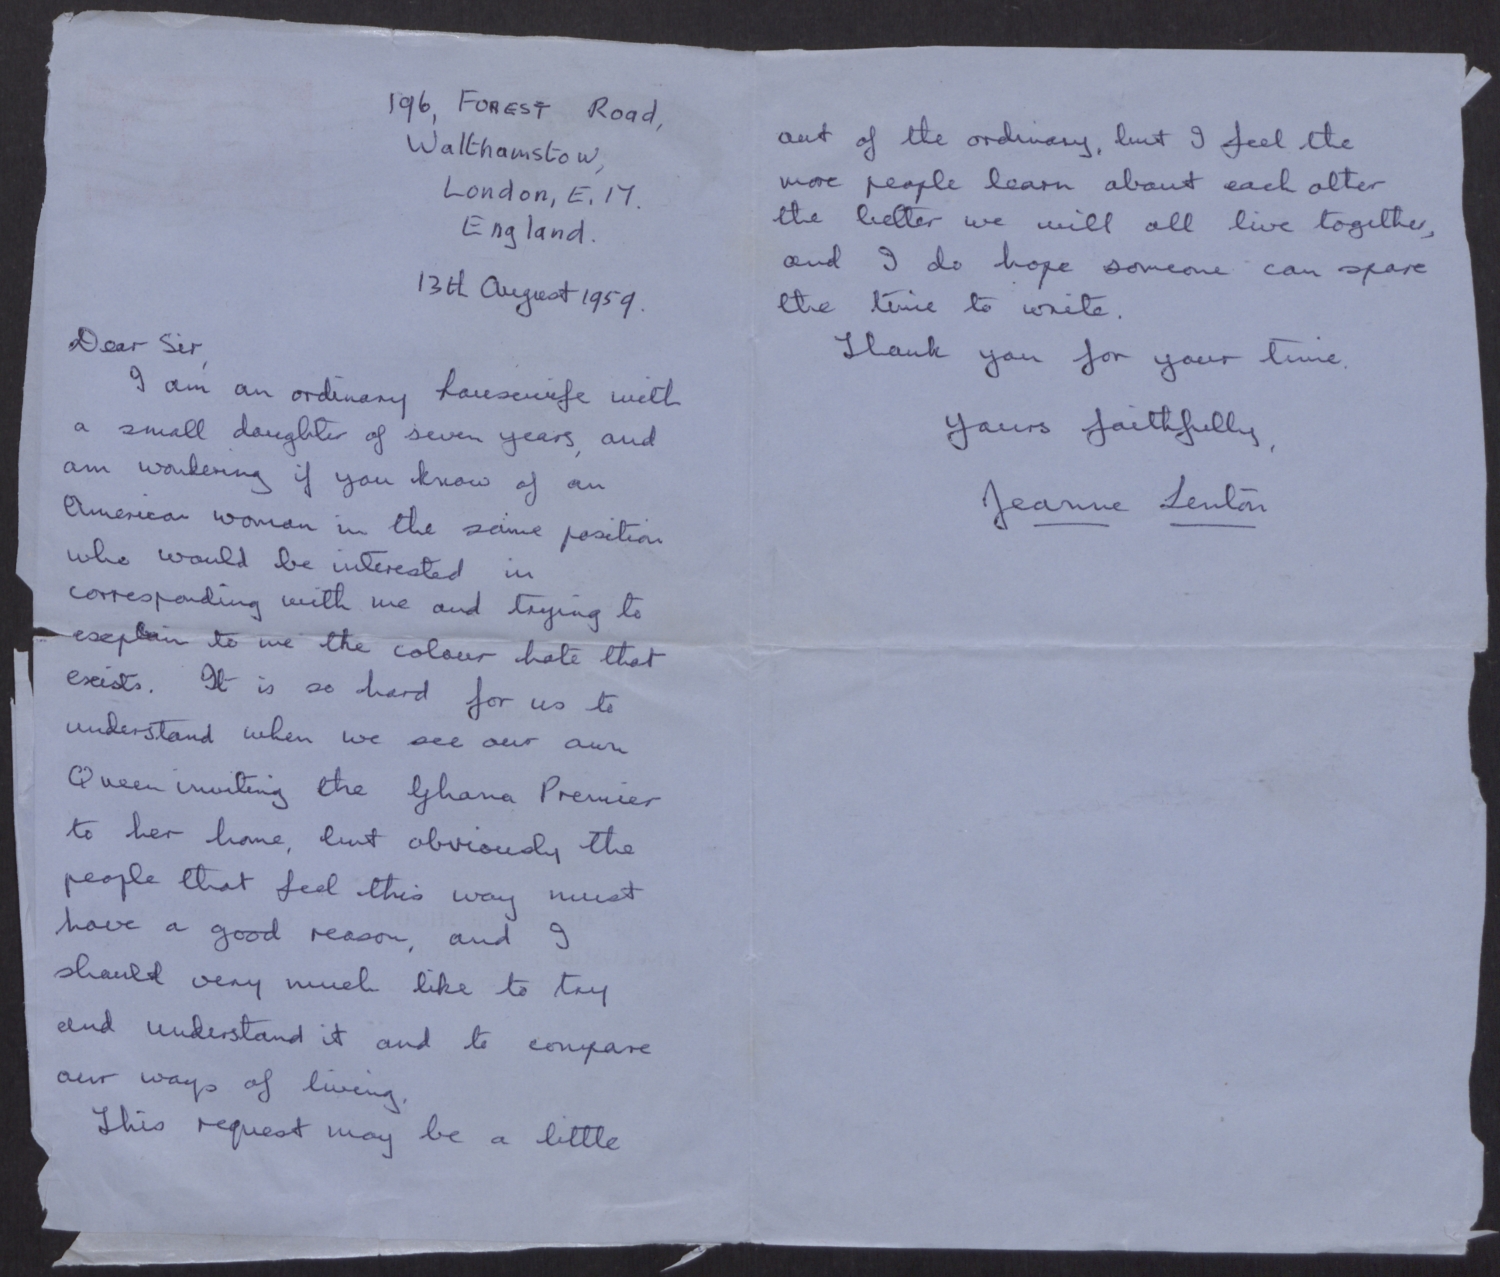 196, FOREST Road,
Walthamstow,
London, E.17.
England.
13th August 1959.
Dear Sir,
I am an ordinary housewife with
a small daughter of seven years, and
am wondering if you know of an
American woman in the same position
who would be interested in
corresponding with me and trying to
explain to me the colour hate that
exists. It is so hard for us to
understand when we see our own
Queen inviting the Ghana Premier
to her home, but obviously the
people that feel this way must
have a good reason, and I
should very much like to try
and understand it and to compare
our ways of living.
This request may be a little
out of the ordinary, but I feel the
more people learn about each other
the better we will all live together,
and I do hope someone can spare
the time to write.
Thank you for your time.
Yours faithfully,
Jeanne Lenton